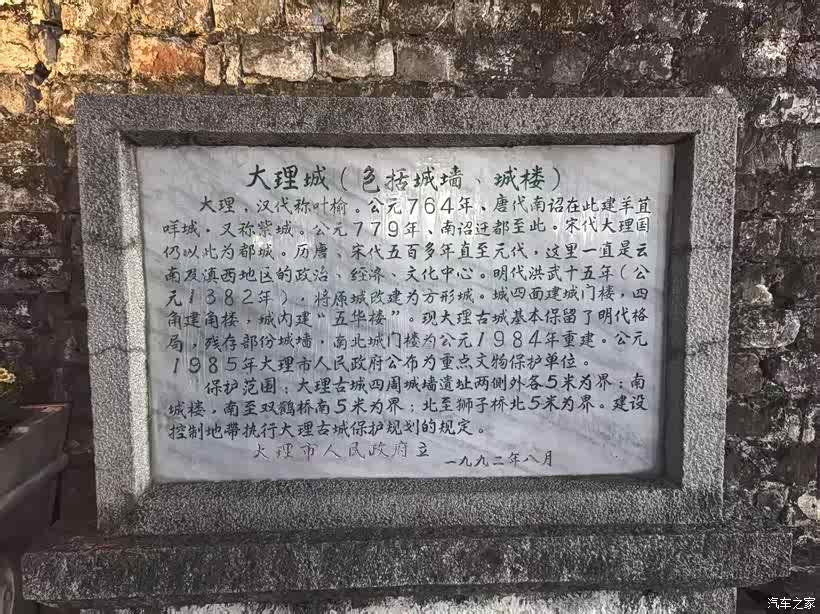 大理城（包括城墙、城楼）
大理，汉代称叶榆。公元764年，唐代南诏在此建羊苴
咩城，又称紫城。公元779年，南诏迁都至此。宋代大理国
仍以此为都城。历唐、宋代五百多年直至元代，这里一直是云
南及滇西地区的政治、经济、文化中心。明代洪武十五年（公
元1382年），将原城改建为方形城。城四面建城门楼，四
角建角楼，城内建“五华楼”。现大理古城基本保留了明代格
局，残存部份城墙，南北城门楼为公元1984年重建。公元
1985年大理市人民政府公布为重点文物保护单位。
保护范围：大理古城四周城墙遗址两侧外各5米为界；南
城楼，南至双鹤桥南5米为界；北至狮子桥北5米为界。建设
控制地带执行大理古城保护规划的规定。
大理市人民政府立
一九九二年八月
汽车之家